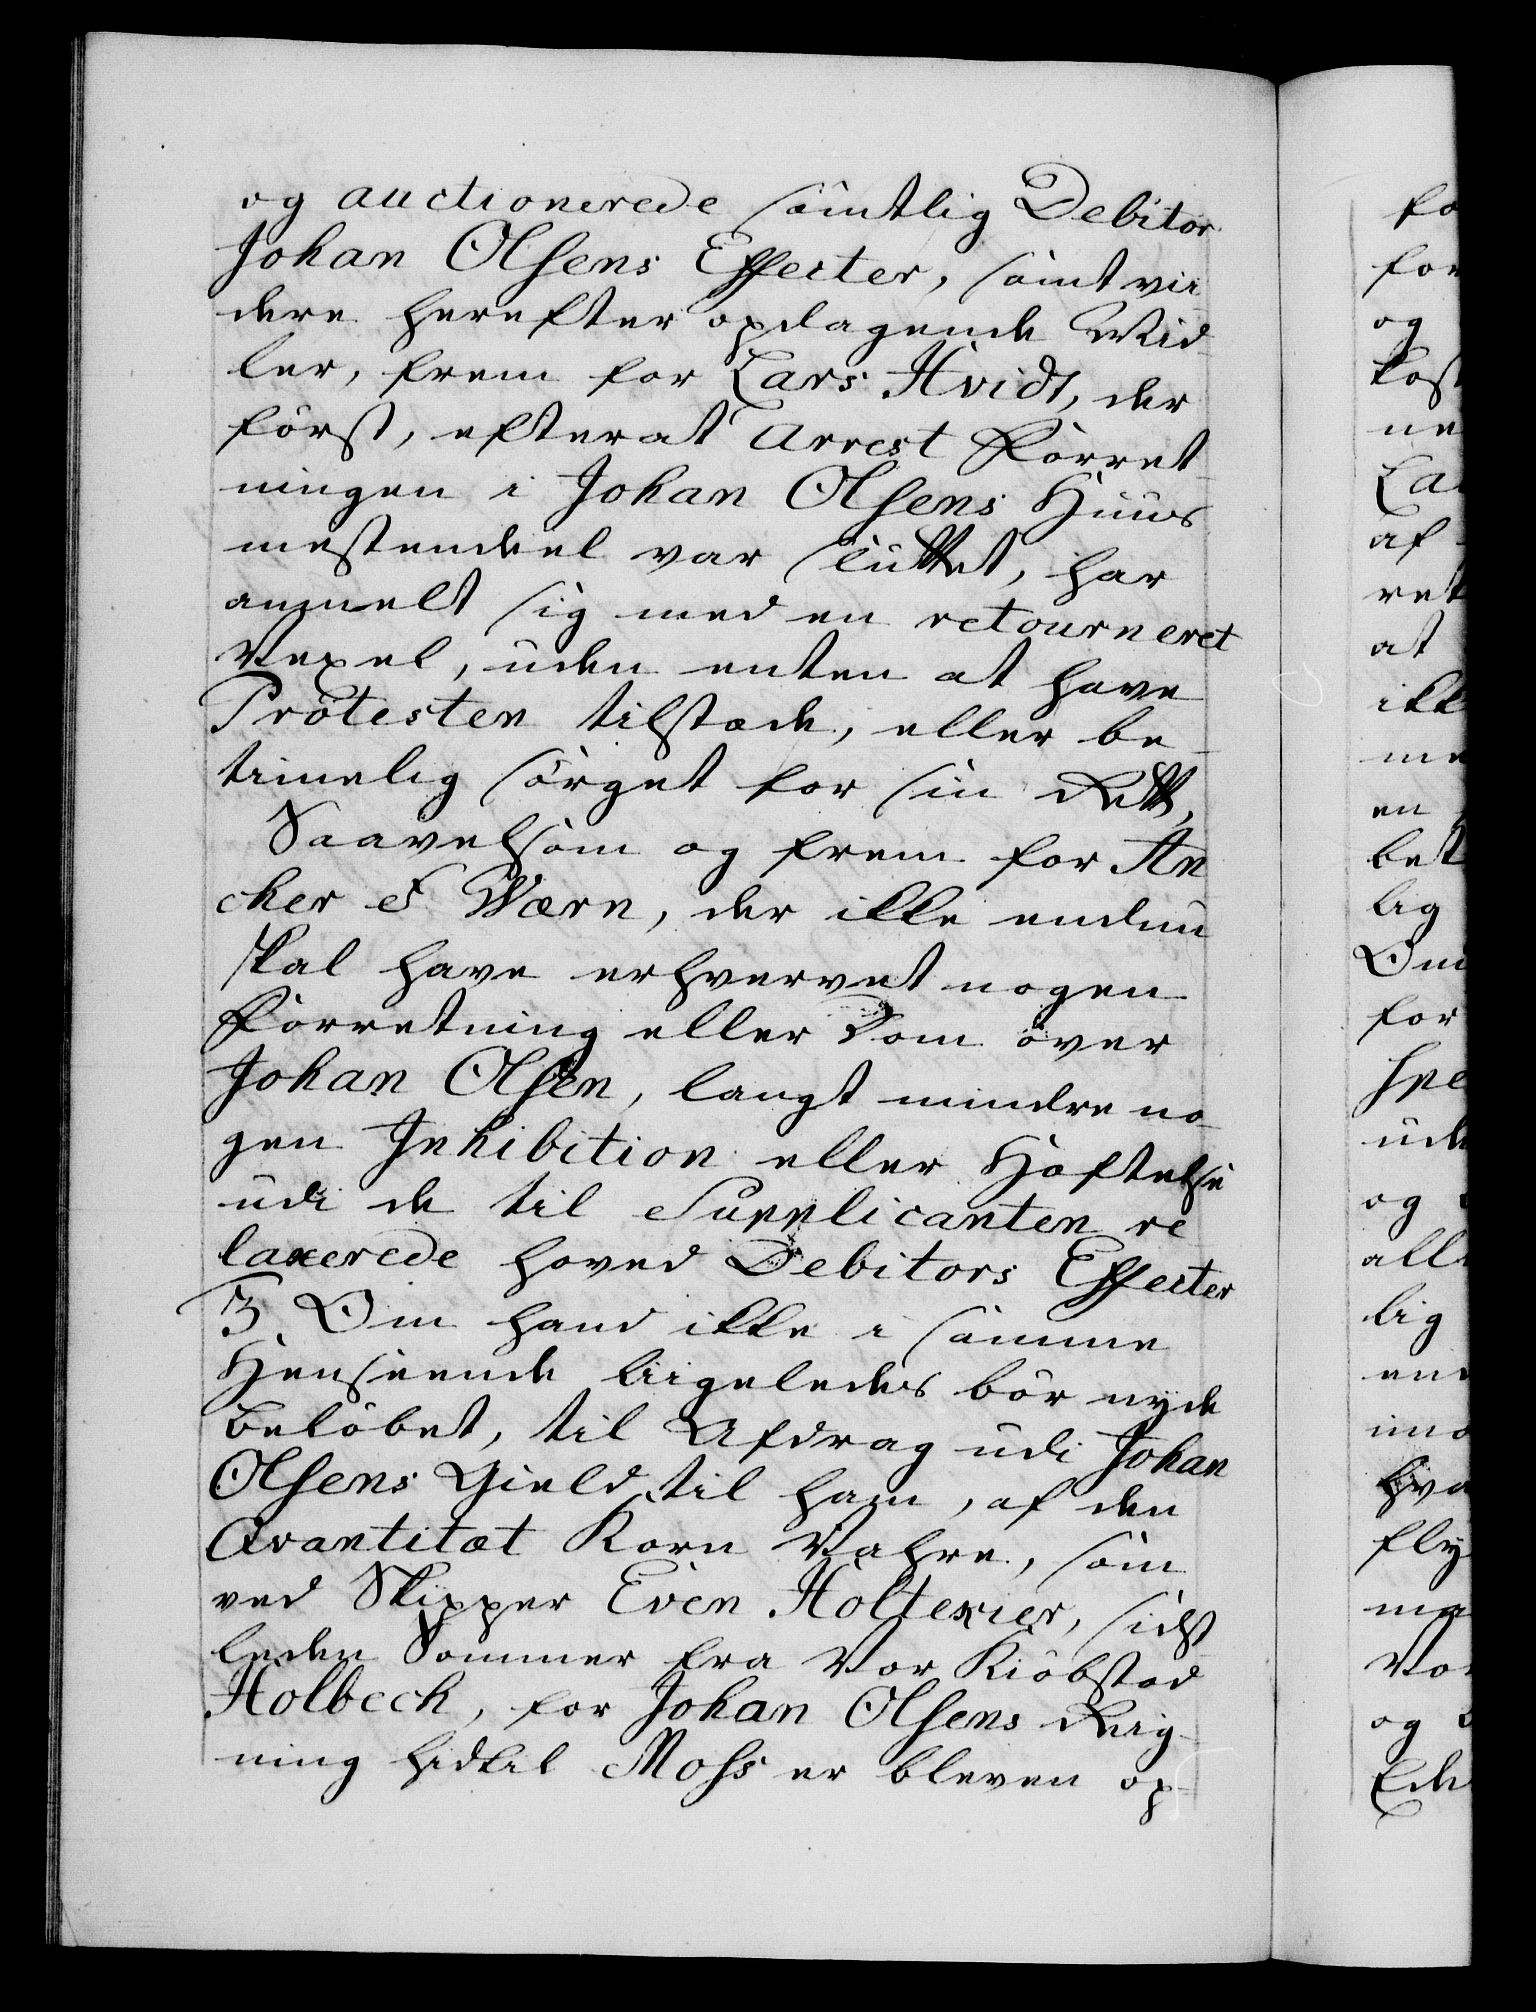 og auctionerede samtlig Debitor
Johan Olsens Effecter, samt vii
dere herefter opdagende Mid-
ler, frem for Lars Hvidt, der
först, efterat Arrest Forret-
ningen i Johan Olsens Huus
mestendeel var sluttet, har
anmelt sig med en retourneret
Vexel, uden enten at have
Protesten tilstæde, eller be-
timelig sörget for sin Rett,
Saavelsom og frem for An
cker & Wærn, der ikke endnu
skal have erhvervet nogen
Forretning eller Dom over
Johan Olsen, langt mindre no-
gen Inhibition eller Hæftelse
udi de til Supplicanten re
laxerede hoved Debitors Effecter
3, Om hand ikke i samme
Henseende liigeledes bör nyde
Belöbet, til Afdrag udi Johan
Olsens Gield til ham, af den
Qvantitæt Korn Vahre, som
ved Skipper Even Holtexier, sidst
leden Sommer fra Vor Kiöbstad
Holbech, for Johan Olsens Reig-
ning hidtil Moss er bleven op-
fo
for
og
kost
ne
La
af
ret
at
ikk
me
en
bet
lig
Om
for
spe
ude
og
alle
lig
end
imo
hva
fly
ma
Vor
og
Ede